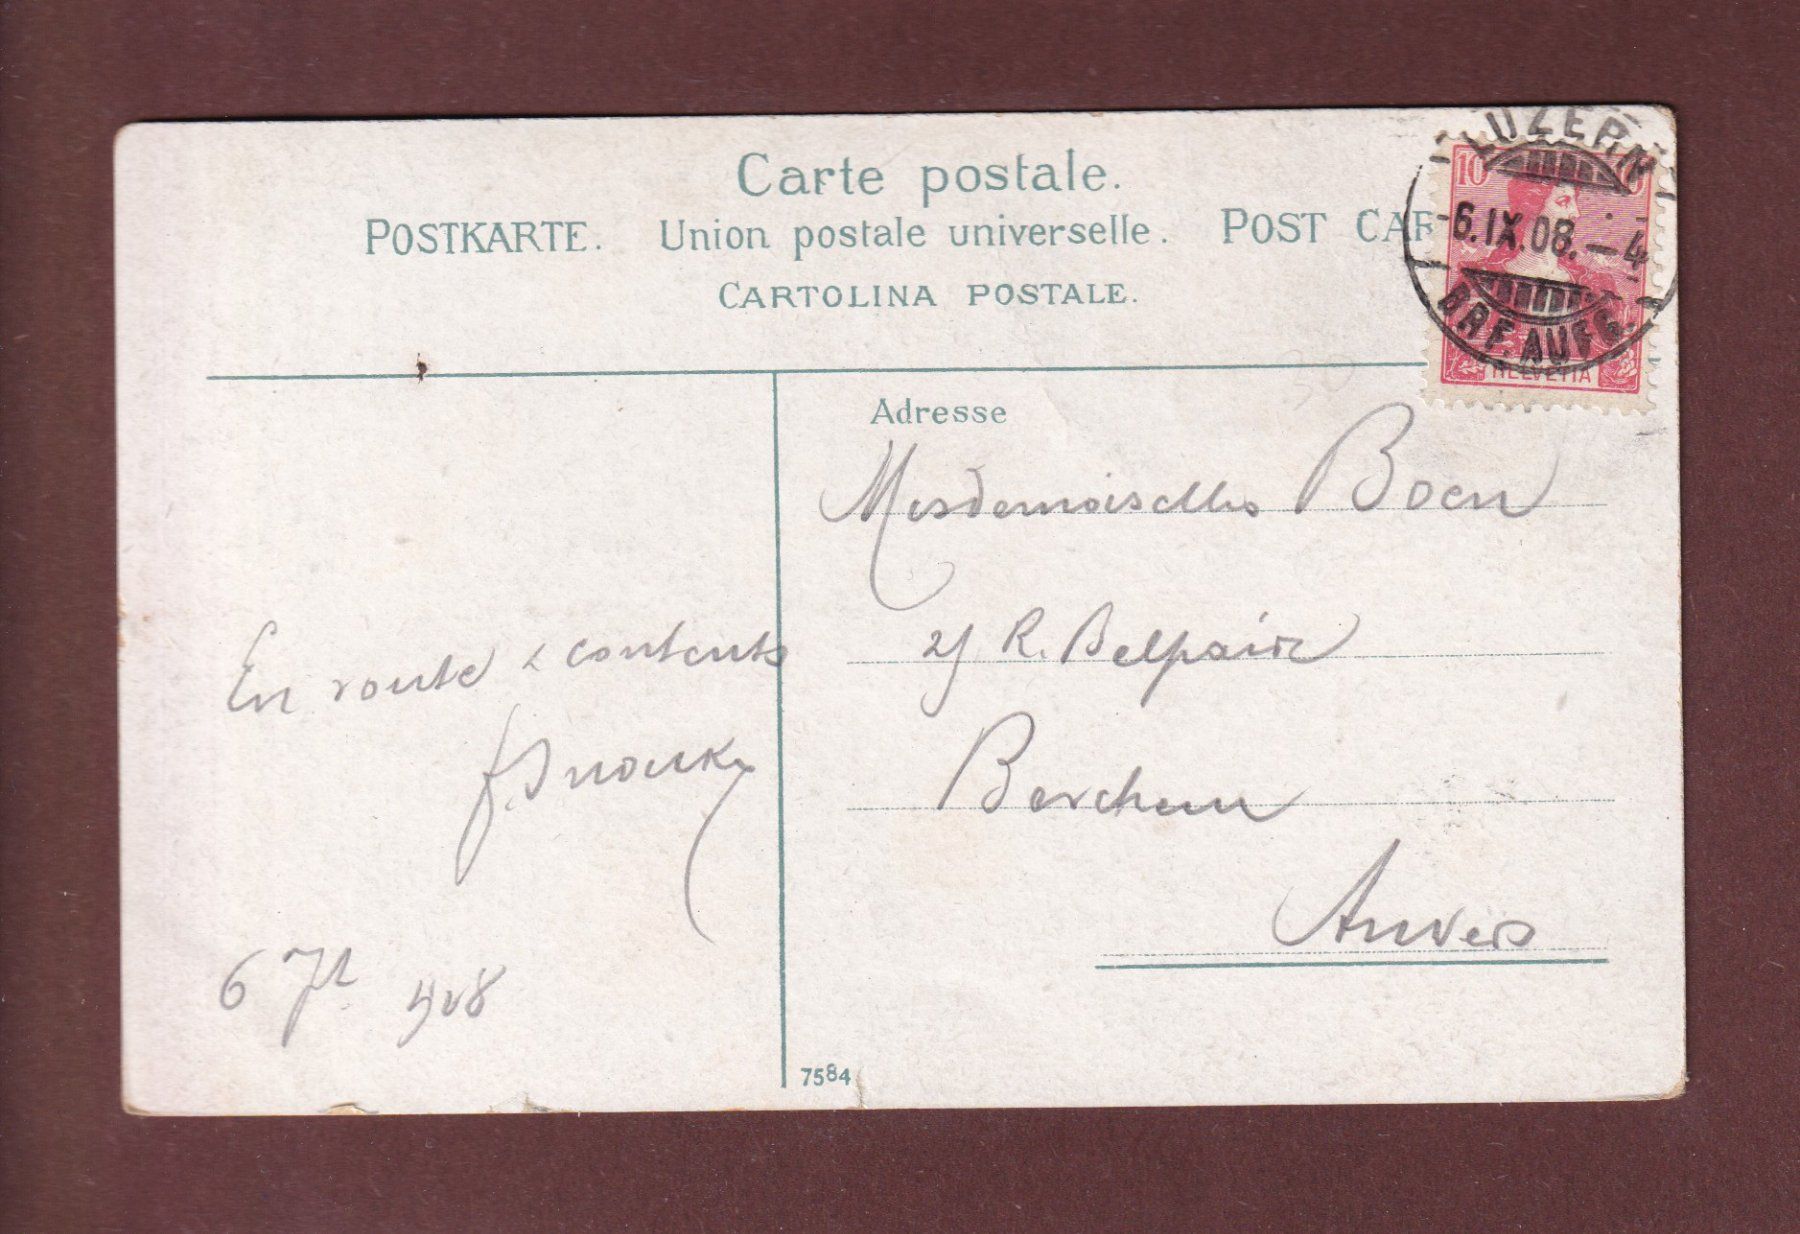 Carte postale.
POSTKARTE. Union postale universelle. POST CAR
CARTOLINA POSTALE.
10
LUZERN
6.IX.08.–4
BRF. AUFG.
HELVETIA
Adresse
Mesdemoiselles Boen
R. Belpaire
Berchem
Anvers
En route & contents
6 7b 908
7584